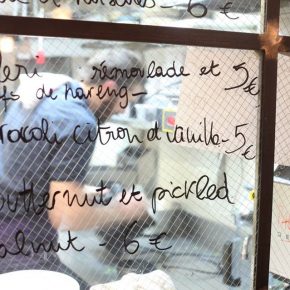 - 6 €
leri rémoulade et 5€
fs de hareng -
rocoli citron et vanille - 5€
utternut et pickled
alnut - 6 €